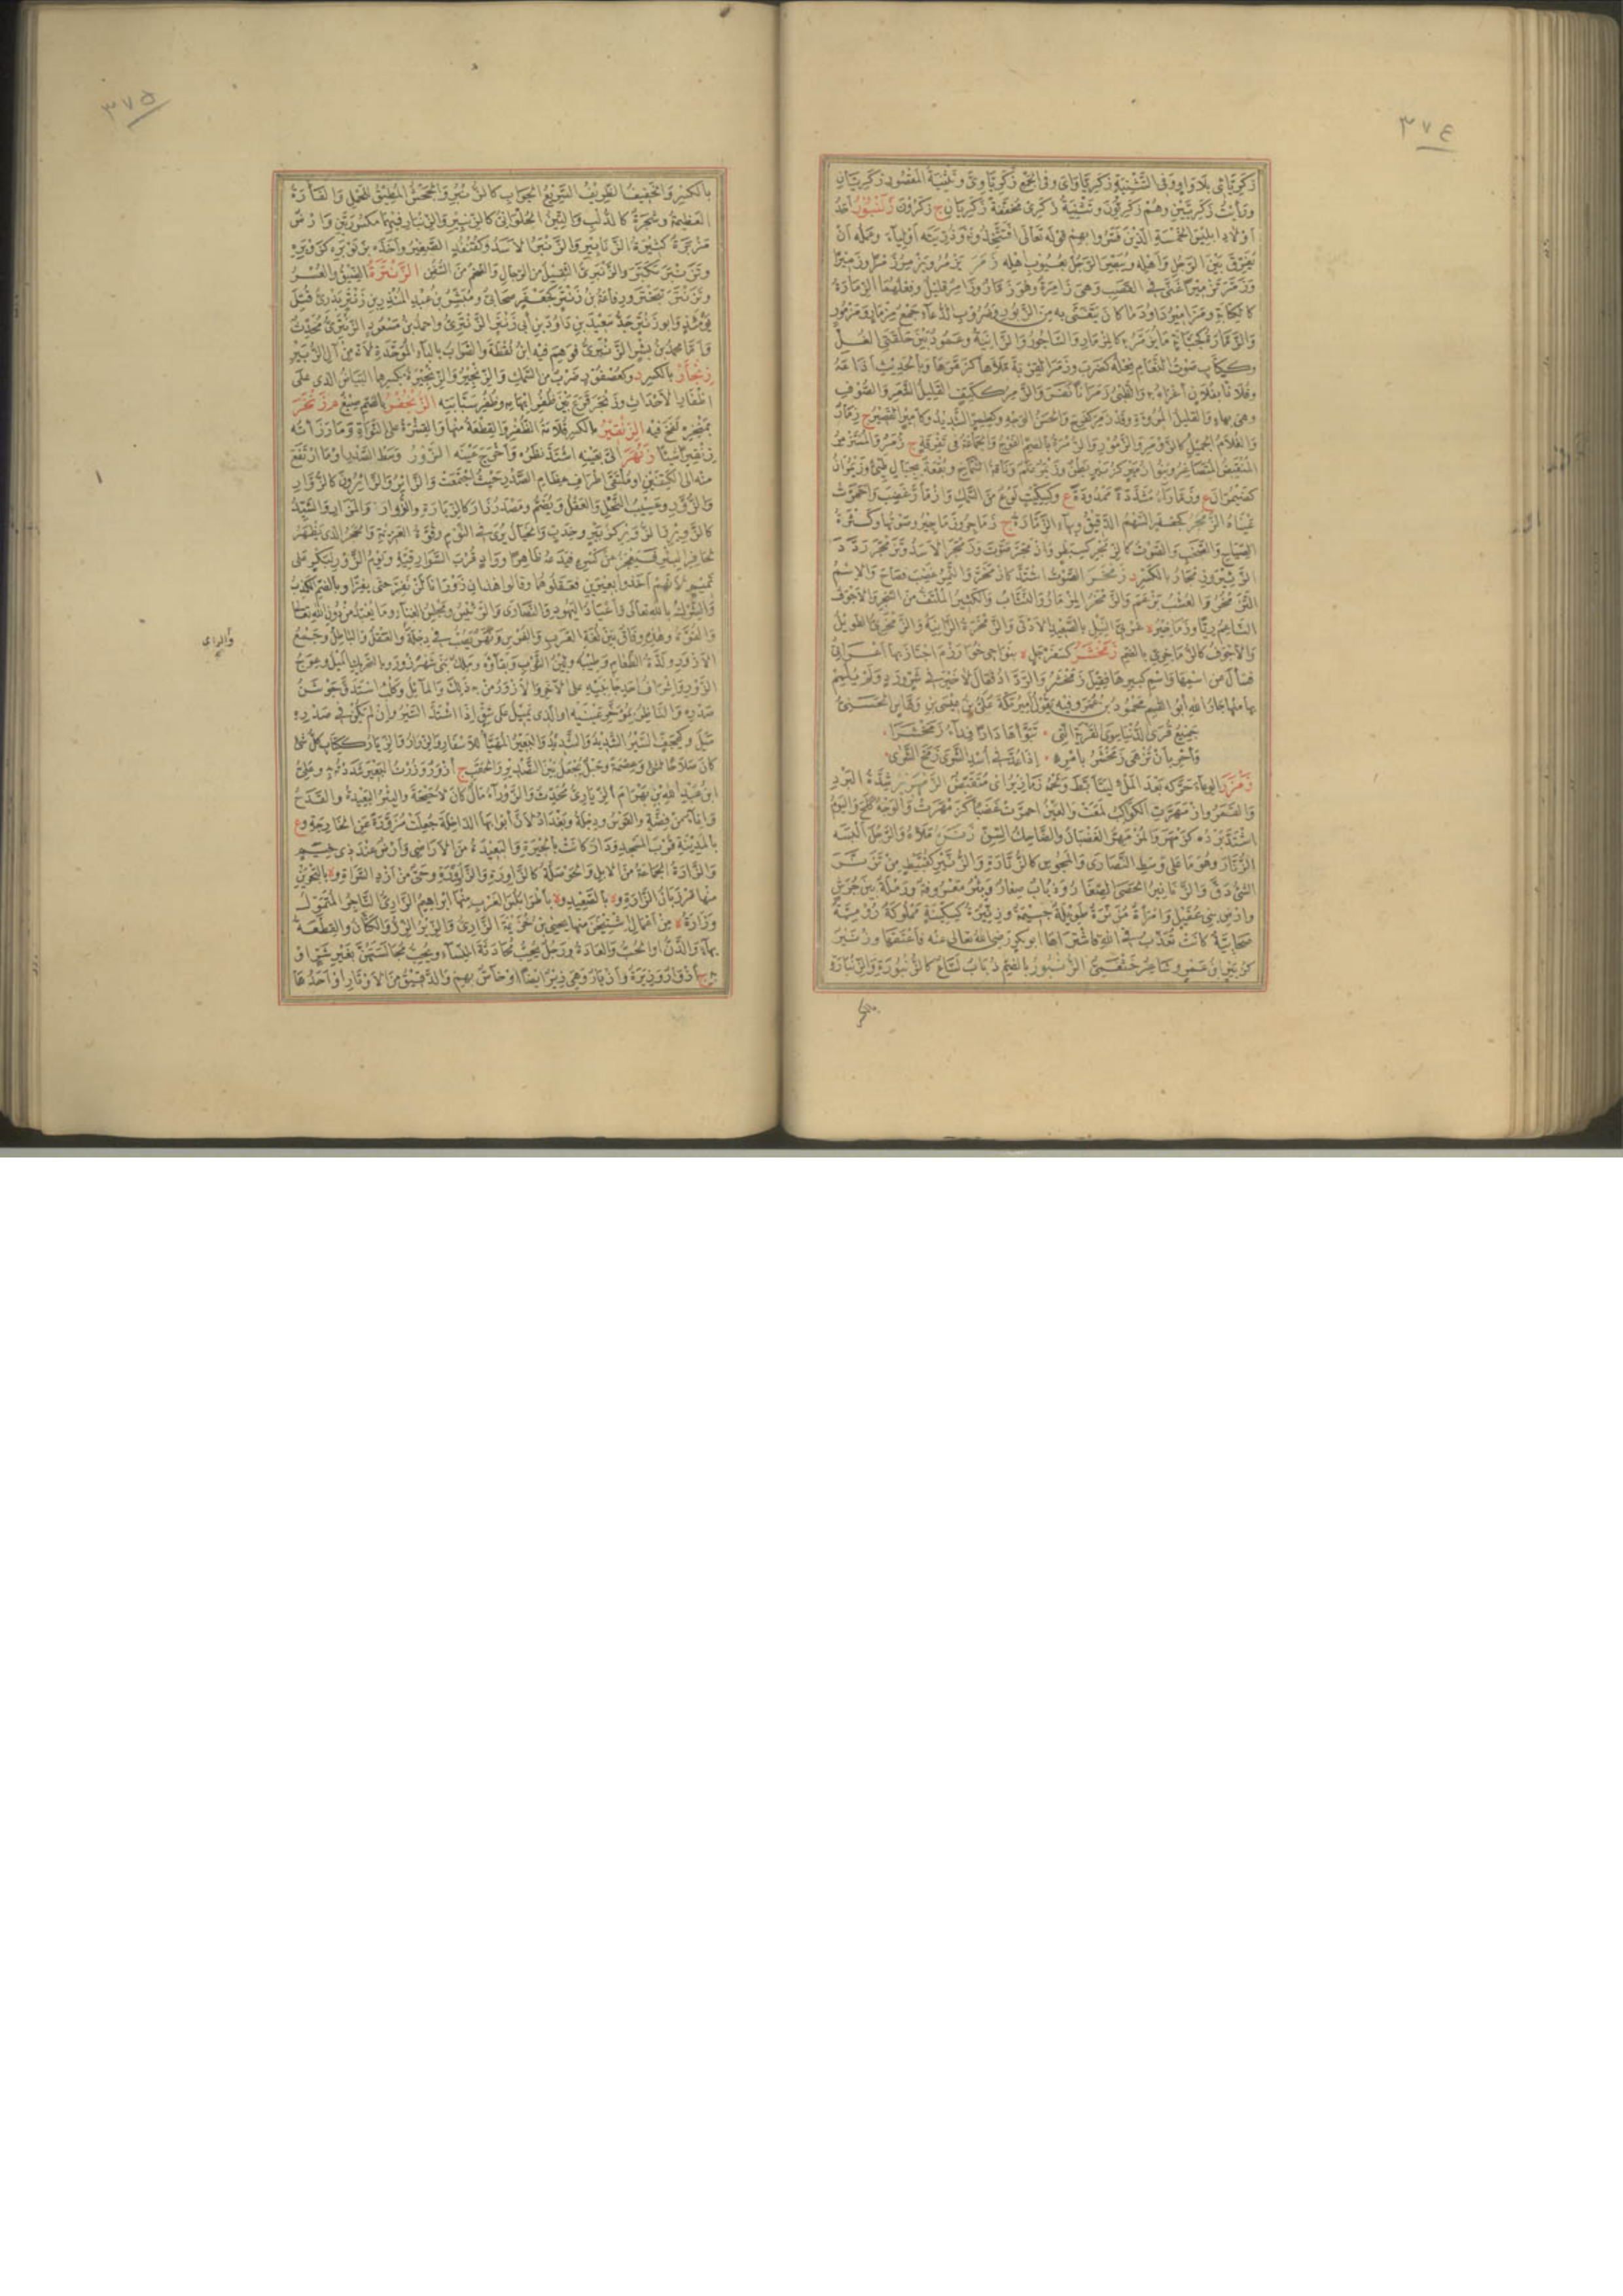 ٣٧٤
زكرياتى بلا واو وفى التثنية زكرياوان وفى الجمع زكرياوون وتثنية المقصور زكريتان
ورأيت زكريتين وهم زكريون وتثنية زكرى مخففة زكريان ج زكرون زلنبور أحد
أولاد ابليس الخمسة الذين فسروا بهم قوله تعالى أفتتخذونه وذريته أولياء وعمله أن
يفرق بين الرجل وأهله ويبصر الرجل بعيوب أهله زمر يزمر ويزمر زمرا وزميرا
وزمر تزميرا غنى فى القصب وهى زامرة وهو زمار وزامر قليل وفعلهما الزمارة
كالكتابة ومزامير داود ما كان يتغنى به من الزبور وضروب الدعاء جمع مزمار ومزمور
والزمارة كجبانة ما يزمر به كالمزمار والساجور والزانية وعمود بين حلقتى الغل
وككتاب صوت النعام وفعله كضرب وزمر القربة ملأها كزمرها وبالحديث أذاعه
وفلانا بفلان أغراه به والظبى زمرانا نفر والزمر ككتف القليل الشعر والصوف
وهى بهاء والقليل المروءة وقد زمر كفرح والحسن الوجه وكطمر الشديد وكأمير القصير ج زمار
والغلام الجميل كالزومر والزمور والزمرة بالضم الفوج والجماعة فى تفرقة ج زمر والمستزمر
المنقبض المتصاغر وبنو زمير كزبير بطن
كضيمران ع وزماراء مشددة ممدودة ع وكسكيت نوع من السمك وازمأر غضب واحمرت
عيناه الزمجر كجعفر السهم الدقيق وبهاء الزمارة ج زماجر وزماجير وصوتها وكثرة
الصياح والصخب والصوت كالزمجر
الزئير وزمجار بالكسر د زمخر الصوت اشتد كازمخر والنمر غضب فصاح والاسم
التزمخر والعشب برعم والزمخر المزمار والنشاب والكثير الملتف من الشجر والأجوف
الناعم ريا وزماخير ة غربى النيل بالصعيد الأدنى والزمخرة الزانية والزمخرى الطويل
والأجوف كالزماخرى بالضم زمخشر كسفرجل ة بنواحى خوارزم اجتاز بها أعرابى
فسأل عن اسمها واسم كبيرها فقيل زمخشر والرداد فقال لا خير فى شر ورد ولم يلمم
بها منها جار الله أبو القاسم محمود بن عمر وفيه يقول أمير مكة على بن عيسى بن وهاس الحسنى
جميع قرى الدنيا سوى القرية التى * تبوأها دارا فداء زمخشرا
وأحر بأن تزهى زمخشر بامرئ * إذا عد فى أسد الشرى زمخ الشرى
زمزر الوعاء حركه بعد الملء ليتأبط الزمهرير شدة البرد
والقمر وازمهرت الكواكب لمعت والعين احمرت غضبا كزمهرت والوجه كلح واليوم
اشتد برده كزمهر والمزمهر الغضبان والضاحك السن زنره ملأه والرجل ألبسه
الزنار وهو ما على وسط النصارى والمجوس كالزنارة والزنير كقبيط من تزنر
الشئ دق والزنانير الحصى الصغار وذباب صغار وبئر معروفة ورملة بين جرش
وأرض بنى عقيل وامرأة مزنرة طويلة جسيمة وزنيرة كسكينة مملوكة رومية
صحابية كانت تعذب فى الله فاشتراها أبو بكر رضى الله تعالى عنه فأعتقها وزنير
كزبير ابن عمرو شاعر خثعمى الزنبور بالضم ذباب لساع كالزنبورة والزنبار
٣٧٥
بالكسر والخفيف الظريف السريع الجواب كالزنبر والجحش المطيق للحمل والفأرة
العظيمة وشجرة كالدلب والتين الحلوانى كالزنبير والزنبار فيهما مكسورتين وأرض
مزبرة كثيرة الزنابير والزنبر الأسد وكقنفذ الصغير وأخذه بزنوبره كزوبره
وتزنبر تكبر والزنبرى الثقيل من الرجال والضخم من السفن الزنترة الضيق والعسر
وتزنتر تبختر ورفاعة بن زنتر كجعفر صحابى ومبشر بن عبد المنذر بن زنتر بدرى قتل
يومئذ وأبو زنتر جد سعيد بن داود بن أبى زنتر الزنترى وأحمد بن مسعود الزنترى محدث
وأما محمد بن بشر الزنترى فوهم فيه ابن نقطة والصواب بالباء الموحدة لأنه من آل الزبير
زنجار بالكسر د وكعصفور ضرب من السمك والزنجير والزنجيرة بكسرهما البياض الذى على
أظفار الأحداث وزنجر قرع بين ظفر ابهامه وظفر سبابته الزنجفر بالضم صبغ م زنخر
بمنخره نفخ فيه الزنقير بالكسر قلامة الظفر والقطعة منها والقشرة على النواة وما رزأته
زنقيرا شيئا زنهر إلى بعينه اشتد نظره وأخرج عينه الزور وسط الصدر أو ما ارتفع
منه إلى الكتفين أو ملتقى أطراف عظام الصدر حيث اجتمعت والزائر والزائرون كالزوار
والزور وعسيب النخل والعقل ويضم ومصدر زار كالزيارة والزوار والمزار والسيد
كالزوير والزوير كزبير وخدب والخيال يرى فى النوم وقوة العزيمة والحجر الذى يظهر
لحافر البئر فيعجز عن كسره فيدعه ظاهرا وواد قرب السوارقية ويوم الزور لبكر على
تميم لأنهم أخذوا بعيرين فعقلوهما وقالوا هذان زورانا لن نفر حتى يفرا وبالضم الكذب
والشرك بالله تعالى وأعياد اليهود والنصارى والرئيس ومجلس الغناء وما يعبد من دون الله تعالى
والقوة وهذه وفاق بين لغة العرب والفرس ونهر يصب فى دجلة والعقل والباطل وجمع
الأزور ولذة الطعام وطيبه ولين الثوب ونقاؤه وملك بنى شهرزور وبالتحريك الميل وعوج
الزور أو اشراف أحد جانبيه على الآخر والأزور من به ذلك والمائل وكلب استدق جوشن
صدره والناظر بمؤخر عينيه أو الذى يميل على شق إذا اشتد السير وان لم يكن فى صدره
ميل وكهجف السير الشديد والشديد والبعير المهيأ للأسفار والزوار والزيار ككتاب كل شئ
كان صلاحا لشئ وعصمة وحبل يجعل بين التصدير والحقب ج أزورة وزرت البعير شددته به وعلى
ابن عبد الله بن بهرام الزيارى محدث والزوراء مال كان لأحيحة والبئر البعيدة والقدح
واناء من فضة والقوس ودجلة وبغداد لأن أبوابها الداخلة جعلت مزورة عن الخارجة وع
بالمدينة قرب المسجد ودار كانت بالحيرة والبعيدة من الأراضى وأرض عند ذى خيم
والزارة الجماعة من الابل والحوصلة كالزاورة والزاوورة وحى من أزد السراة وة بالبحرين
منها مرزبان الزارة وة بالصعيد وة بأطرابلس الغرب منها ابراهيم الزارى التاجر المتمول
وزارة ة من أعمال اشتيخن منها يحيى بن خزيمة الزارى والزير الدن والكتان والقطعة
بهاء والدن أو الحب والعادة ورجل يحب محادثة النساء ويحب مجالستهن بغير شر أو
به ج أزوار وزيرة وأزيار وهى زير أيضا أو خاص بهم والدقيق من الأوتار أو أحدها